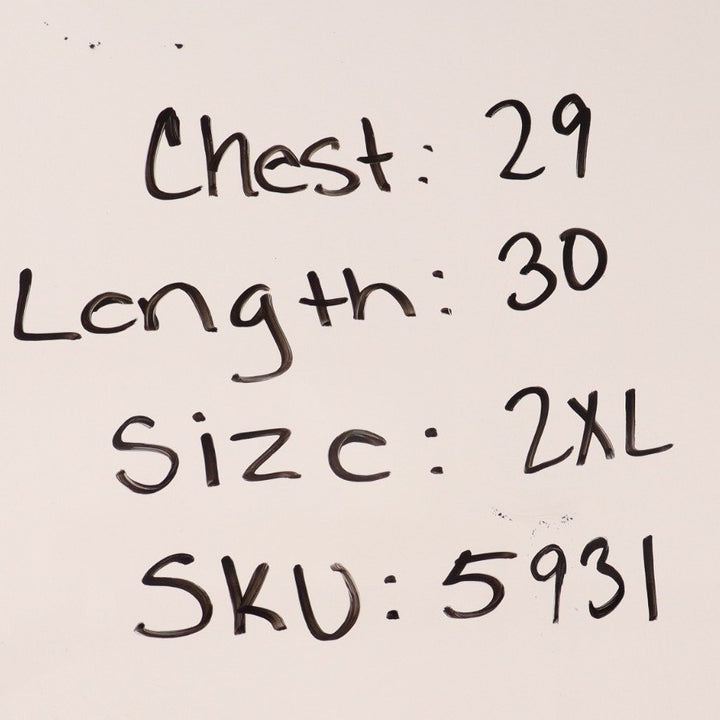 Chest: 29
Length: 30
Size: 2XL
SKU: 5931